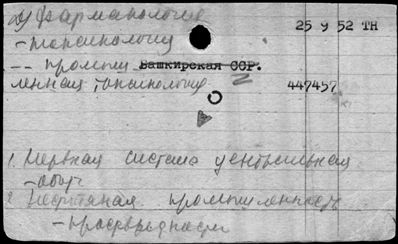 2) Фармакология 25 9 52 ТН
- токсикология
-- промыш Башкирская ССР.
ленная токсикология 447457
1. Нервная система центральная
2. Нефтяная промышленность
- профвредности